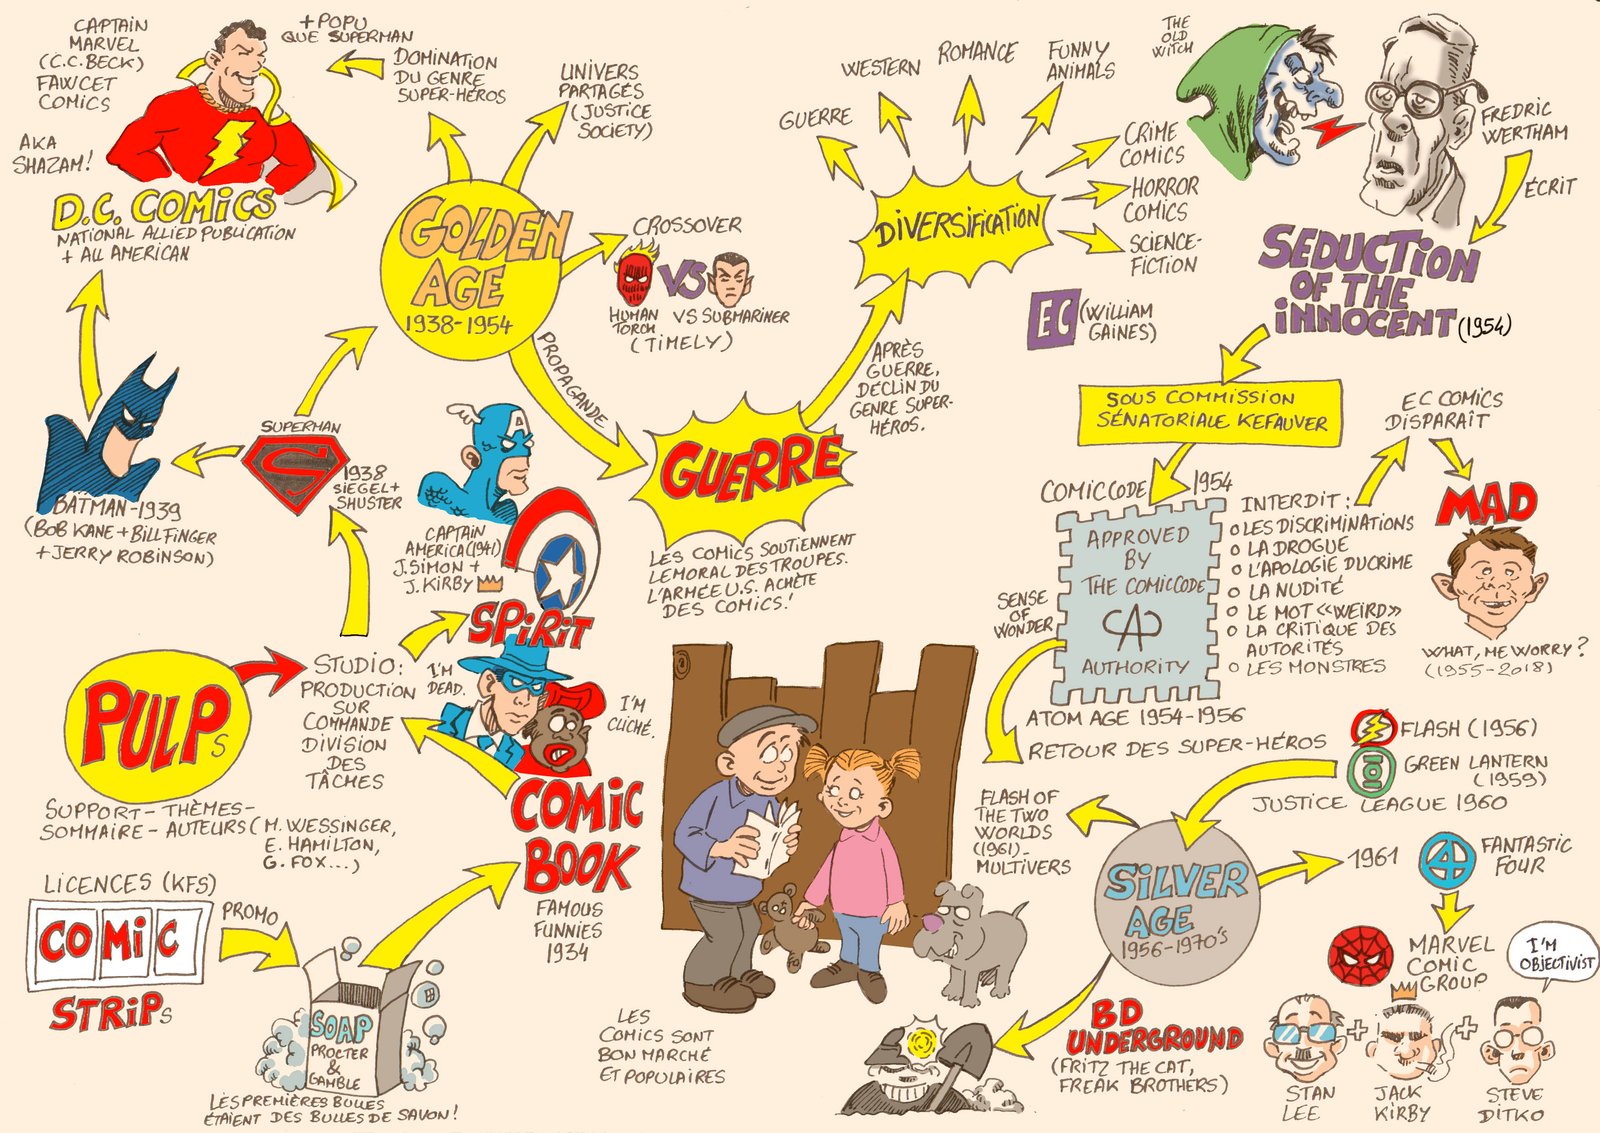 CAPTAIN
MARVEL
(C.C.BECK)
FAWCET
COMICS
AKA
SHAZAM!
+ POPU
QUE SUPERMAN
DOMINATION
DU GENRE
SUPER-HÉROS
D.C. COMICS
NATIONAL ALLIED PUBLICATION
+ ALL AMERICAN
UNIVERS
PARTAGÉS
(JUSTICE
SOCIETY)
GOLDEN
AGE
1938-1954
CROSSOVER
VS
HUMAN
TORCH
VS SUBMARINER
(TIMELY)
PROPAGANDE
GUERRE
LES COMICS SOUTIENNENT
LE MORAL DES TROUPES.
L'ARMÉE U.S. ACHÈTE
DES COMICS!
APRÈS
GUERRE,
DÉCLIN DU
GENRE SUPER-
HÉROS.
DIVERSIFICATION
GUERRE
WESTERN
ROMANCE
FUNNY
ANIMALS
CRIME
COMICS
HORROR
COMICS
SCIENCE-
FICTION
EC
(WILLIAM
GAINES)
THE
OLD
WITCH
FREDRIC
WERTHAM
ÉCRIT
SEDUCTION
OF THE
INNOCENT (1954)
SOUS COMMISSION
SÉNATORIALE KEFAUVER
COMIC CODE 1954
APPROVED
BY
THE COMIC CODE
CA
AUTHORITY
INTERDIT :
LES DISCRIMINATIONS
LA DROGUE
L'APOLOGIE DU CRIME
LA NUDITÉ
LE MOT «WEIRD»
LA CRITIQUE DES
AUTORITÉS
LES MONSTRES
EC COMICS
DISPARAÎT
MAD
WHAT, ME WORRY?
(1955-2018)
SENSE
OF
WONDER
ATOM AGE 1954-1956
RETOUR DES SUPER-HÉROS
FLASH (1956)
GREEN LANTERN
(1959)
JUSTICE LEAGUE 1960
BATMAN-1939
(BOB KANE + BILL FINGER
+ JERRY ROBINSON)
SUPERMAN
S
1938
SIEGEL+
SHUSTER
A
CAPTAIN
AMERICA (1941)
J.SIMON +
J.KIRBY
SPIRIT
I'M
DEAD.
I'M
CLICHÉ.
PULPs
STUDIO:
PRODUCTION
SUR
COMMANDE
DIVISION
DES
TÂCHES
SUPPORT - THÈMES -
SOMMAIRE - AUTEURS (M. WESSINGER,
E. HAMILTON,
G. FOX...)
COMIC
BOOK
FAMOUS
FUNNIES
1934
LICENCES (KFS)
COMIC
STRIPs
PROMO
SOAP
PROCTER
&
GAMBLE
LES PREMIÈRES BULLES
ÉTAIENT DES BULLES DE SAVON!
LES
COMICS SONT
BON MARCHÉ
ET POPULAIRES
FLASH OF
THE TWO
WORLDS
(1961)-
MULTIVERS
SILVER
AGE
1956-1970's
1961
4
FANTASTIC
FOUR
MARVEL
COMIC
GROUP
I'M
OBJECTIVIST
+
+
STAN
LEE
JACK
KIRBY
STEVE
DITKO
BD
UNDERGROUND
(FRITZ THE CAT,
FREAK BROTHERS)